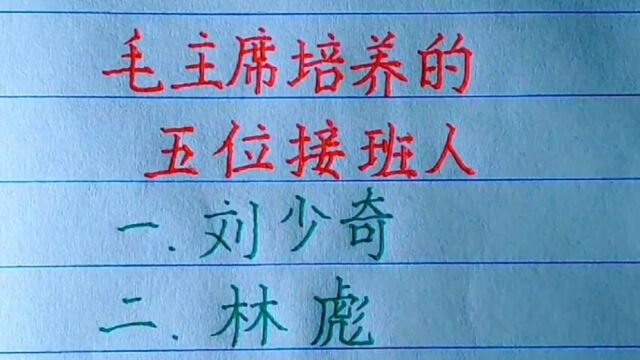 毛主席培养的
五位接班人
一.刘少奇
二.林彪